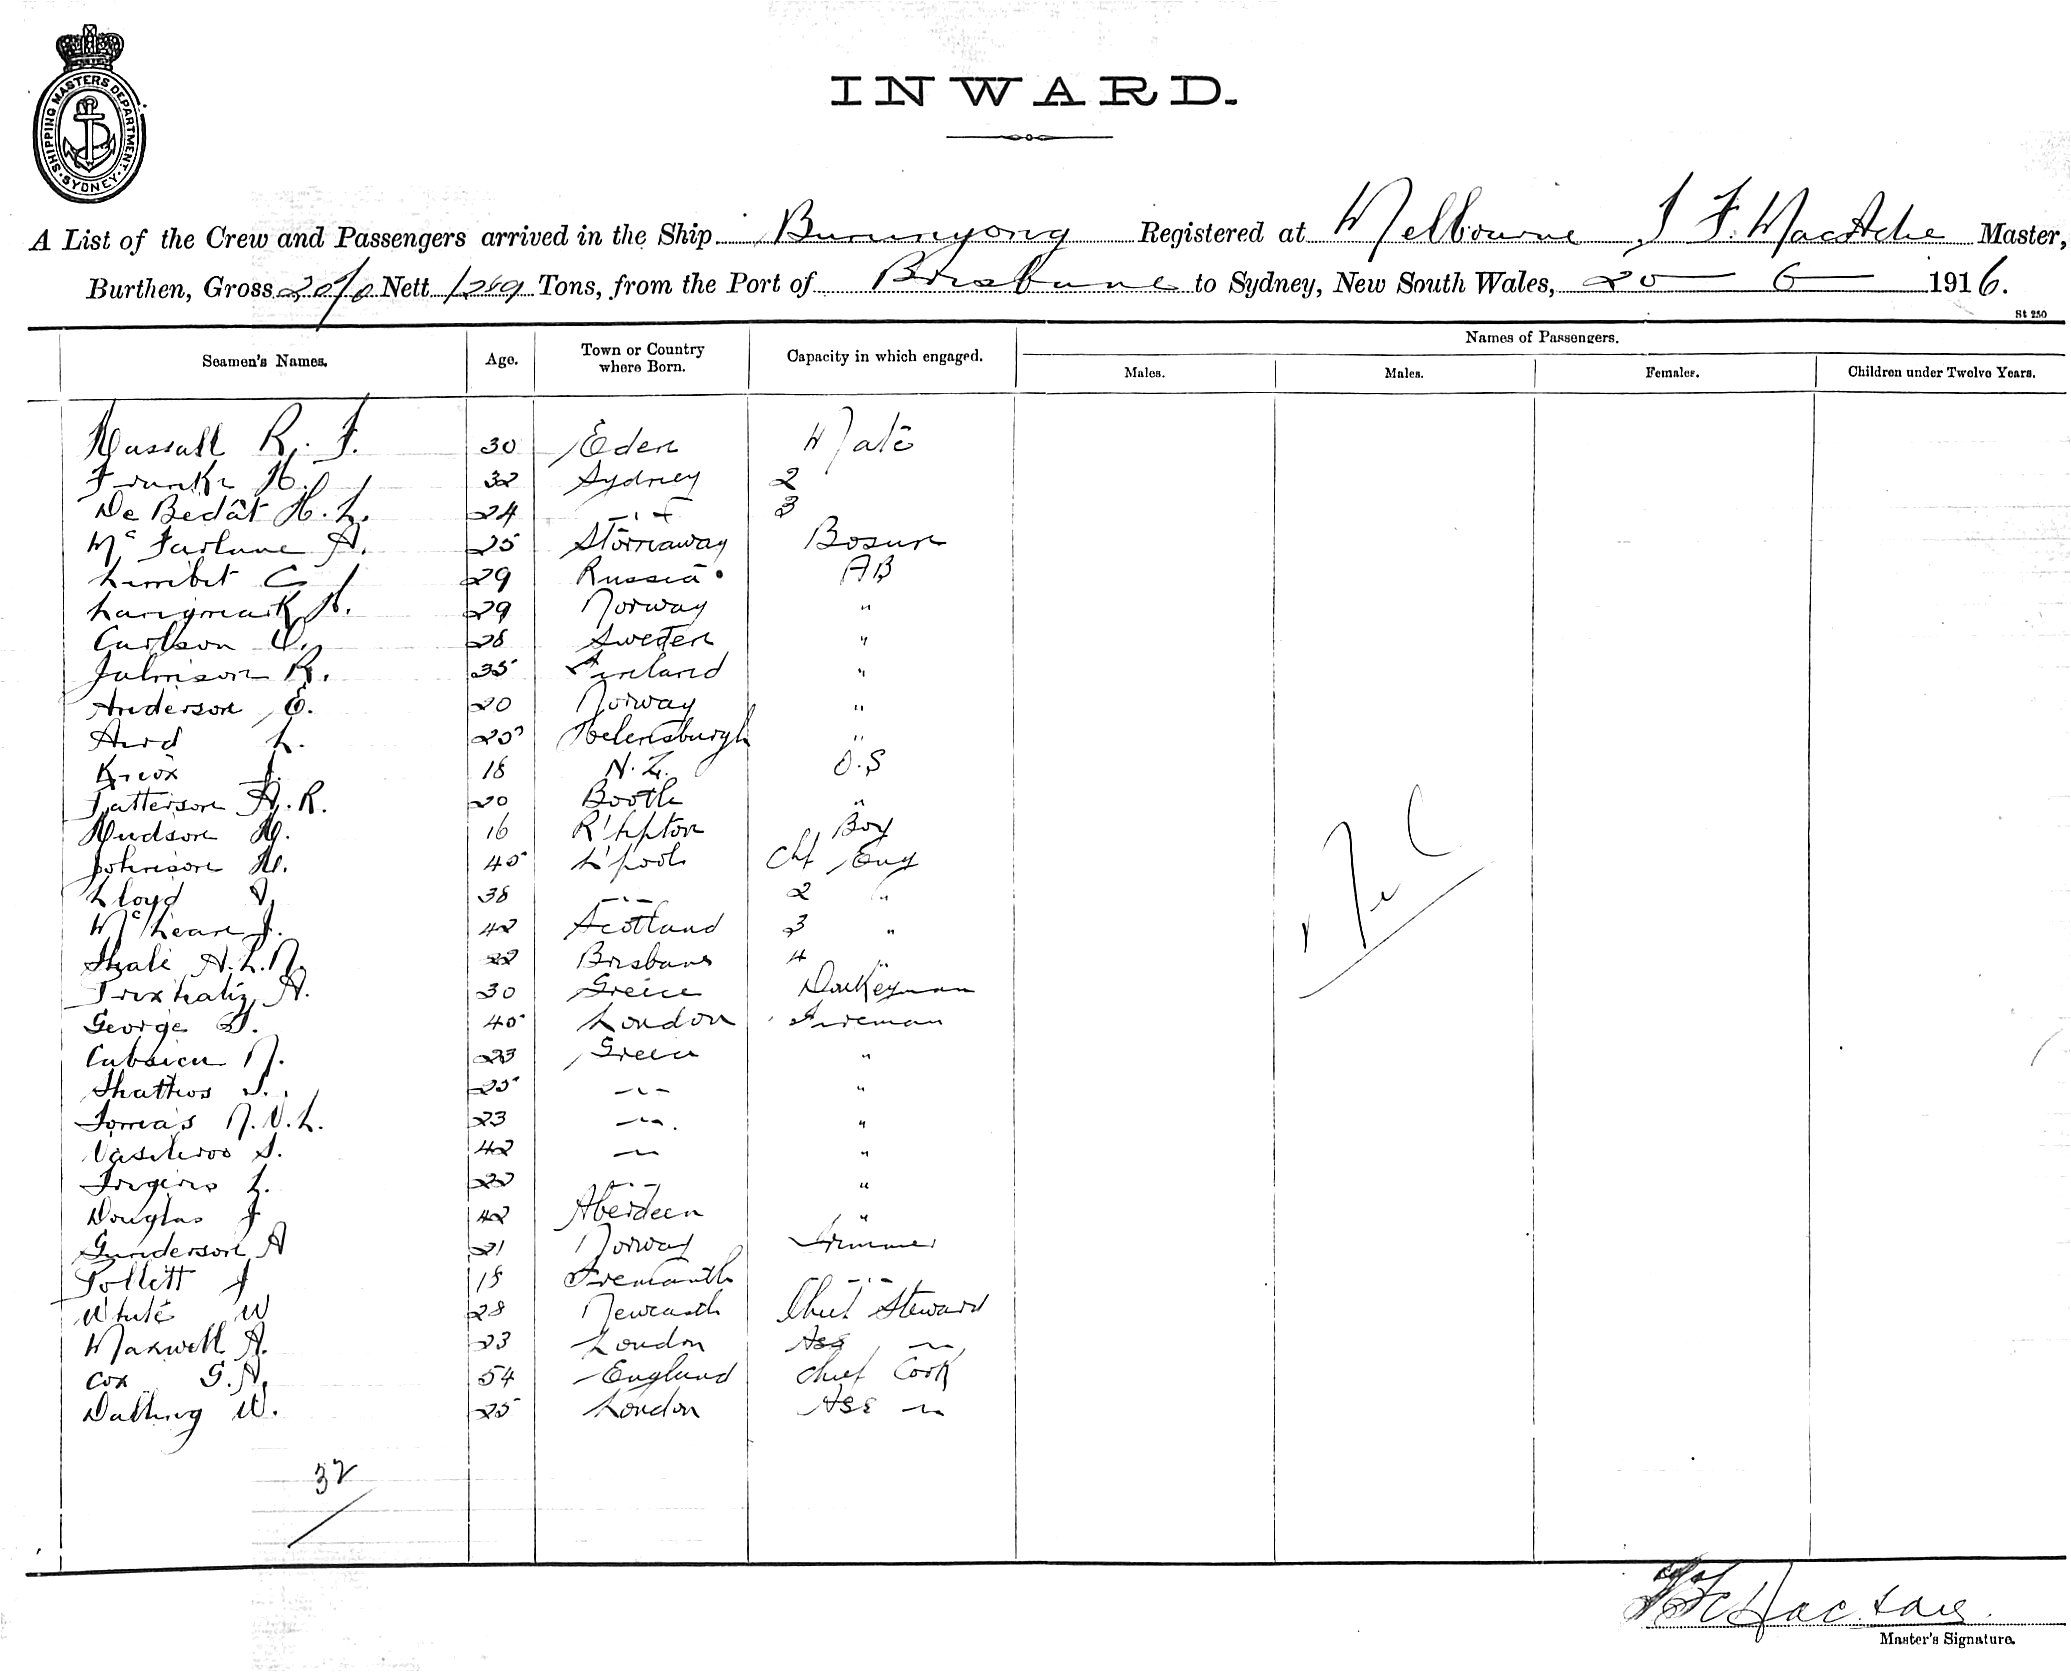 SHIPPING MASTERS DEPARTMENT. SYDNEY.
INWARD.
A List of the Crew and Passengers arrived in the Ship Buninyong Registered at Melbourne J F. Master,
Burthen, Gross 2070 Nett 1269 Tons, from the Port of Brisbane to Sydney, New South Wales, 20 — 6 — 1916.
St 250
Seamen's Names. Age. Town or Country where Born. Capacity in which engaged. Names of Passengers.
Males. Males. Females. Children under Twelve Years.
Hassall R. F. 30 Eden Mate
H. 32 Sydney 2
De Bedât H. L. 24 -"- 3
McFarlane A. 25 Stornaway Bosun
C 29 Russia AB
Langmark H. 29 Norway "
Carlson O. 28 Sweden "
Johnson R. 35 Finland "
Anderson E. 20 Norway "
Aird L. 25 Helensburgh "
Knox J. 18 N.Z. O.S
Patterson A. R. 20 Bootle "
Hudson H. 16 R'hpton Boy
Johnson H. 45 L'pool Chf Eng
Lloyd 38 -"- 2 "
McLean J. 42 Scotland 3 "
A. L. N. 22 Brisbane 4 "
A. 30 Greece Donkeyman
George 45 London Fireman
N. 23 Greece "
S. 25 -"- "
Tomas N. V. L. 23 -"- "
S. 42 -"- "
L. 22 -"- "
Douglas J 42 Aberdeen "
Gunderson A 21 Norway Trimmer
Pollett J 18 Fremantle -"-
White W 28 Newcastle Chief Steward
Maxwell A. 23 London Ass -"-
Cox G. A. 54 England Chief Cook
Dalling W. 25 London Ass -"-
32
Master's Signature.